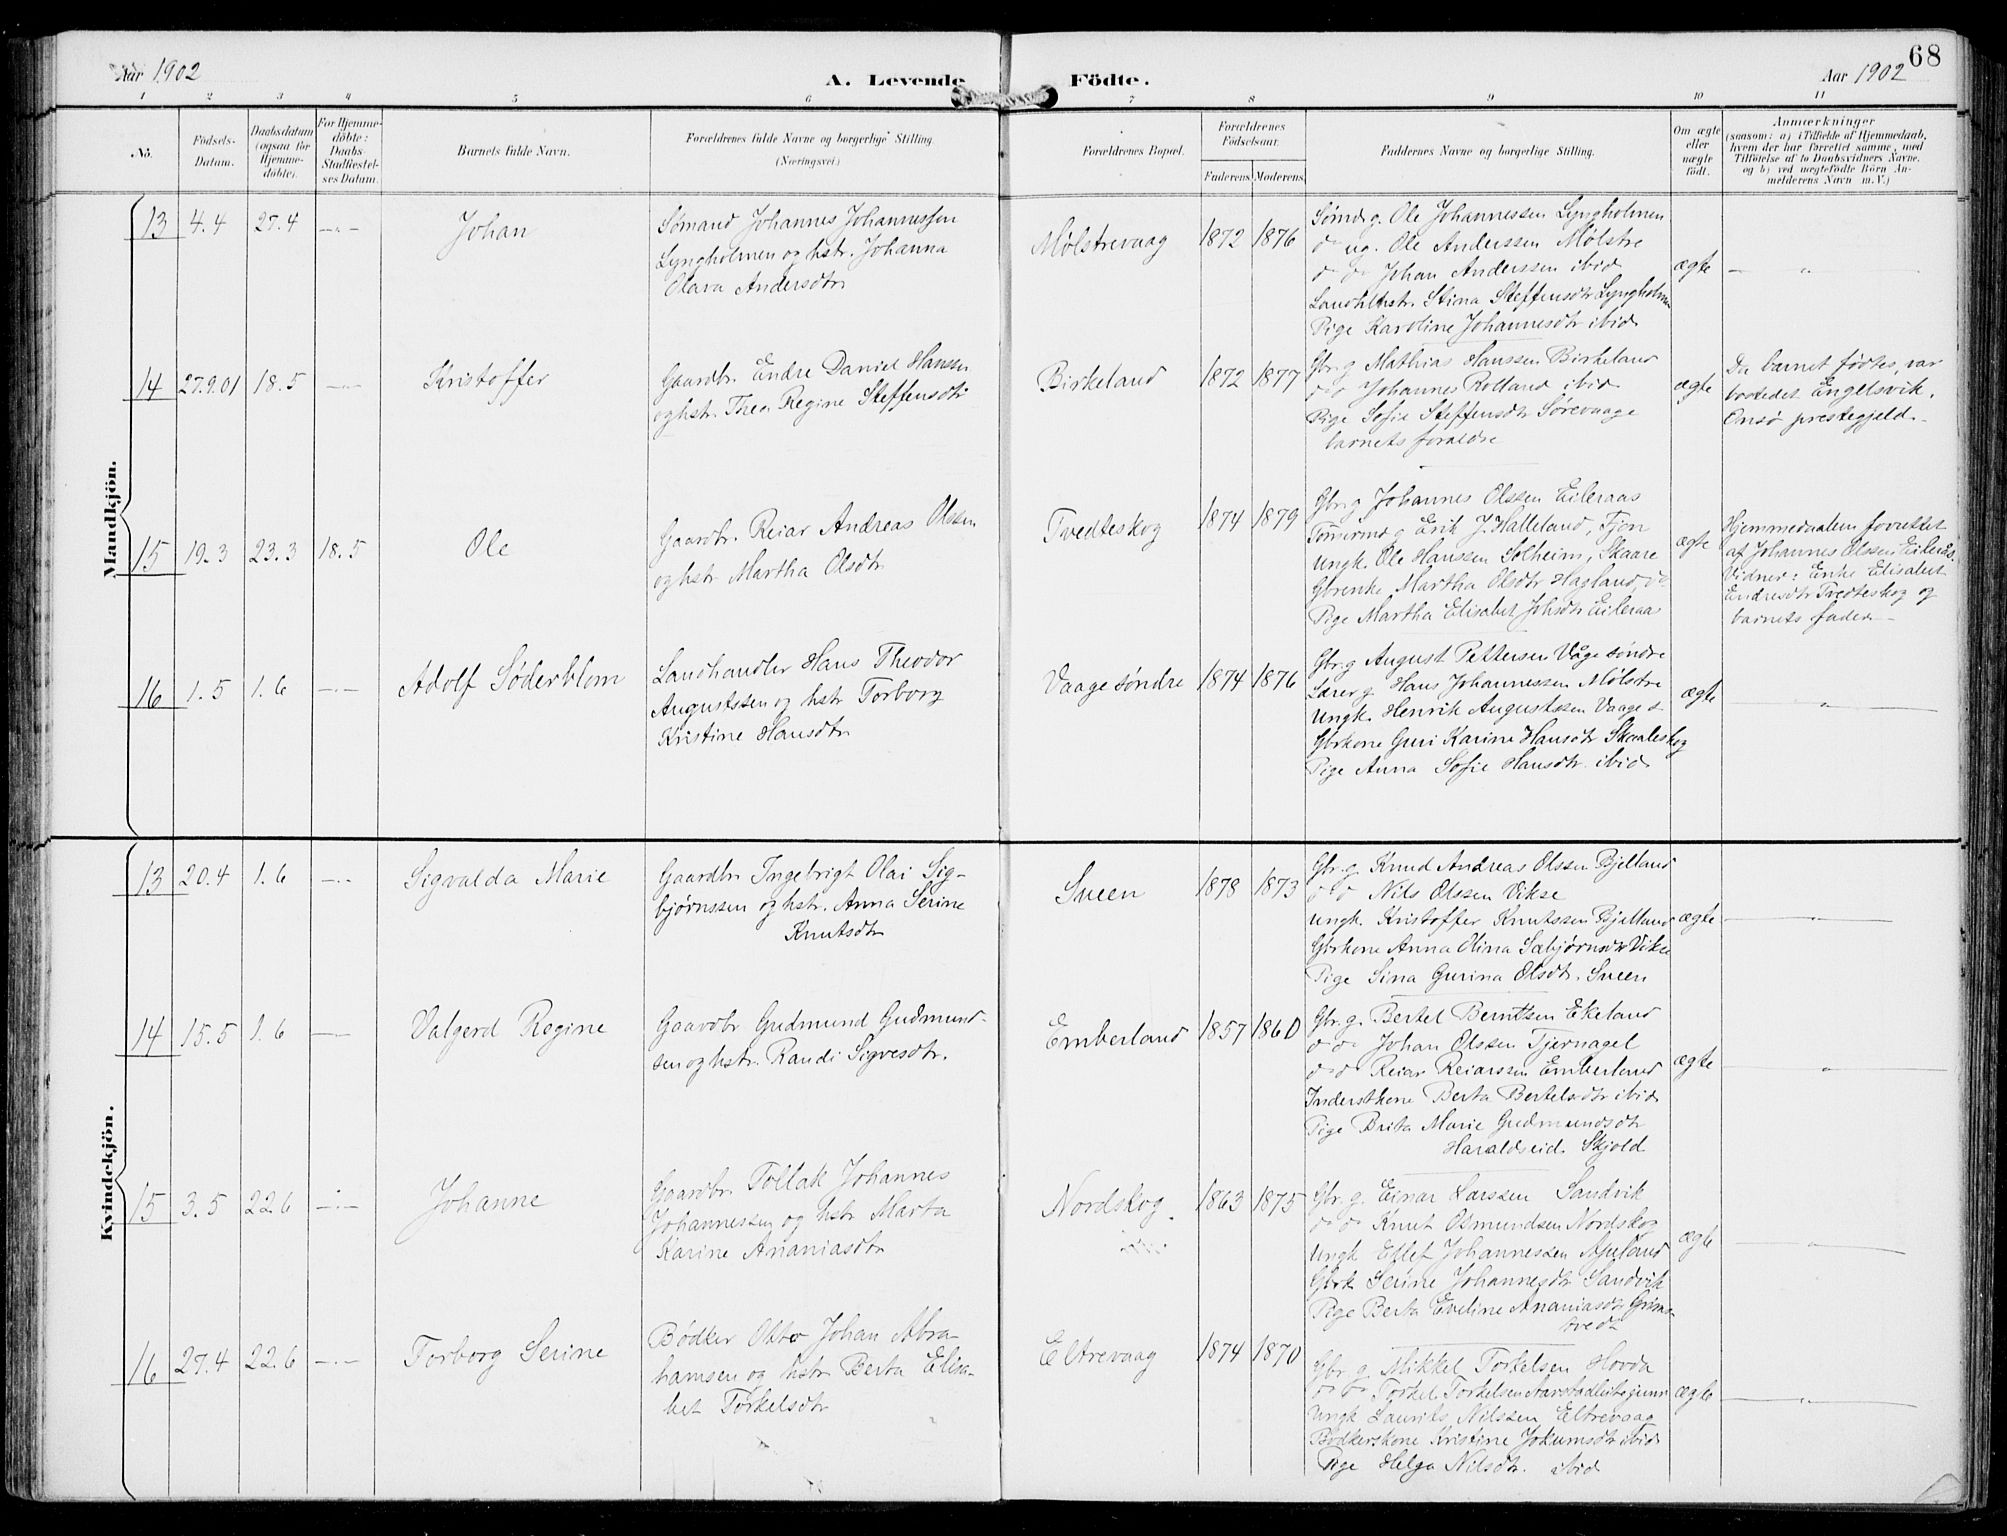 68
Aar 1902
A. Levende Födte.
Aar 1902
1 2 3 4 5 6 7 8 9 10 11
No.
Födsels-Datum.
Daabsdatum (ogsaa for Hjemmedöbte).
For Hjemmedöbte: Daabs-Stadfestelses Datum.
Barnets fulde Navn.
Forældrenes fulde Navne og borgerlige Stilling.
(Næringsvei.)
Forældrenes Bopæl.
Forældrenes Födselsaar.
Faderens. Moderens.
Faddernes Navne og borgerlige Stilling.
Om ægte eller uægte födt.
Anmærkninger
(saasom: a) i Tilfælde af Hjemmedaab, hvem der har forrettet samme, med Tilföielse af to Daabsvidners Navne, og b) ved uægtefödte Börn Anmelderens Navn m. V.)
Mandkjön.
13 4.4 27.4 Johan
Sømand Johannes Johannessen
Lyngholmen og hstr. Johanna
Olava Andersdtr
Mølstrevaag 1872 1876
Sømd g. Ole Johannessen Lyngholmen
do ug. Ole Anderssen Mølstre
do do Johan Anderssen ibid
Landhhstr. Stina Steffensdtr Lyngholmen
Pige Karoline Johannesdtr ibid
ægte
14 27.9.01 18.5 Kristoffer
Gaardbr. Endre Daniel Hansen
og hstr. Thea Regine Steffensdtr
Birkeland 1872 1877
Gbr. g Mathias Hanssen Birkeland
do do Johannes Rolland ibid
Pige Sofie Steffensdtr Sørevaage
barnets foraldre
ægte
Da barnet fødtes, var
bostedet Engelsvik,
Onsø prestegjeld.
15 19.3 23.3 18.5 Ole
Gaardbr. Reiar Andreas Olssen
og hstr Martha Olsdtr
Tvedteskog 1874 1879
Gbr. g Johannes Olssen Eileraas
Tømrmd g Erik J. Halleland, Tjøn
Ungk. Ole Hanssen Solheim, Skaare
Gbrenke Martha Olsdtr Hagland, do
Pige Martha Elisabet Johsdtr Eileraas
ægte
Hjemmedaaben forrettet
af Johannes Olssen Eileraas.
Vidner: Enke Elisabet
Endresdtr Tvedteskog og
barnets fader
16 1.5 1.6 Adolf Søderblom
Landhandler Hans Theodor
Augustssen og hstr Torborg
Kristine Hansdtr
Vaage søndre 1874 1876
Gbr. g August Pettersen Våge søndre
Lærer g Hans Johannessen Mølstre
Ungk. Henrik Augustssen Vaage s
Gbrkone Guri Karine Hansdtr Skaaleskog
Pige Anna Sofie Hansdtr. ibid
ægte
Kvindekjön.
13 20.4 1.6 Sigvalda Marie
Gaardbr Ingebrigt Olai Sig-
bjørnssen og hstr. Anna Serine
Knutsdtr
Sveen 1878 1873
Gbr. g. Knud Andreas Olssen Bjelland
do do Nils Olssen Vikse
Ungk. Kristoffer Knutssen Bjelland
Gbrkone Anna Olina Sæbjørnsdtr Vikse
Pige Sina Gurina Olsdtr. Sveen
ægte
14 15.5 1.6 Valgerd Regine
Gaardbr Gudmund Gudmund-
sen og hstr. Randi Sigvesdtr.
Emberland 1857 1860
Gbr. g. Bertel Berntsen Ekeland
do do Johan Olssen Tjernagel
do do Reiar Reiarssen Emberland
Inderstkone Berta Bertelsdtr ibid
Pige Brita Marie Gudmundsdtr
Haraldseid. Skjold
ægte
15 3.5 22.6 Johanne
Gaardbr. Tollak Johannes
Johannessen og hstr Marta
Karine Ananiasdtr
Nordskog. 1863 1875
Gbr. g. Einar Larssen Sandvik
do do Knut Osmundsen Nordskog
Ungk Etlef Johannessen
Gbrk Serine Johannesdtr Sandvik
Pige Berta Eveline Ananiasdtr Grims-
tvedt
ægte
16 27.4 22.6 Torborg Serine
Bødker Otto Johan Abra-
hamsen og hstr Berta Elisa-
bet Torkelsdtr
Eltrevaag 1874 1870
Gbr. g. Mikkel Torkelsen Hovda
do do Torkel Torkelsen
Ungk Laurits Nilssen Eltrevaag
Bødkerskone Kristine Jokumsdtr ibid
Pige Helga Nilsdtr. ibid
ægte